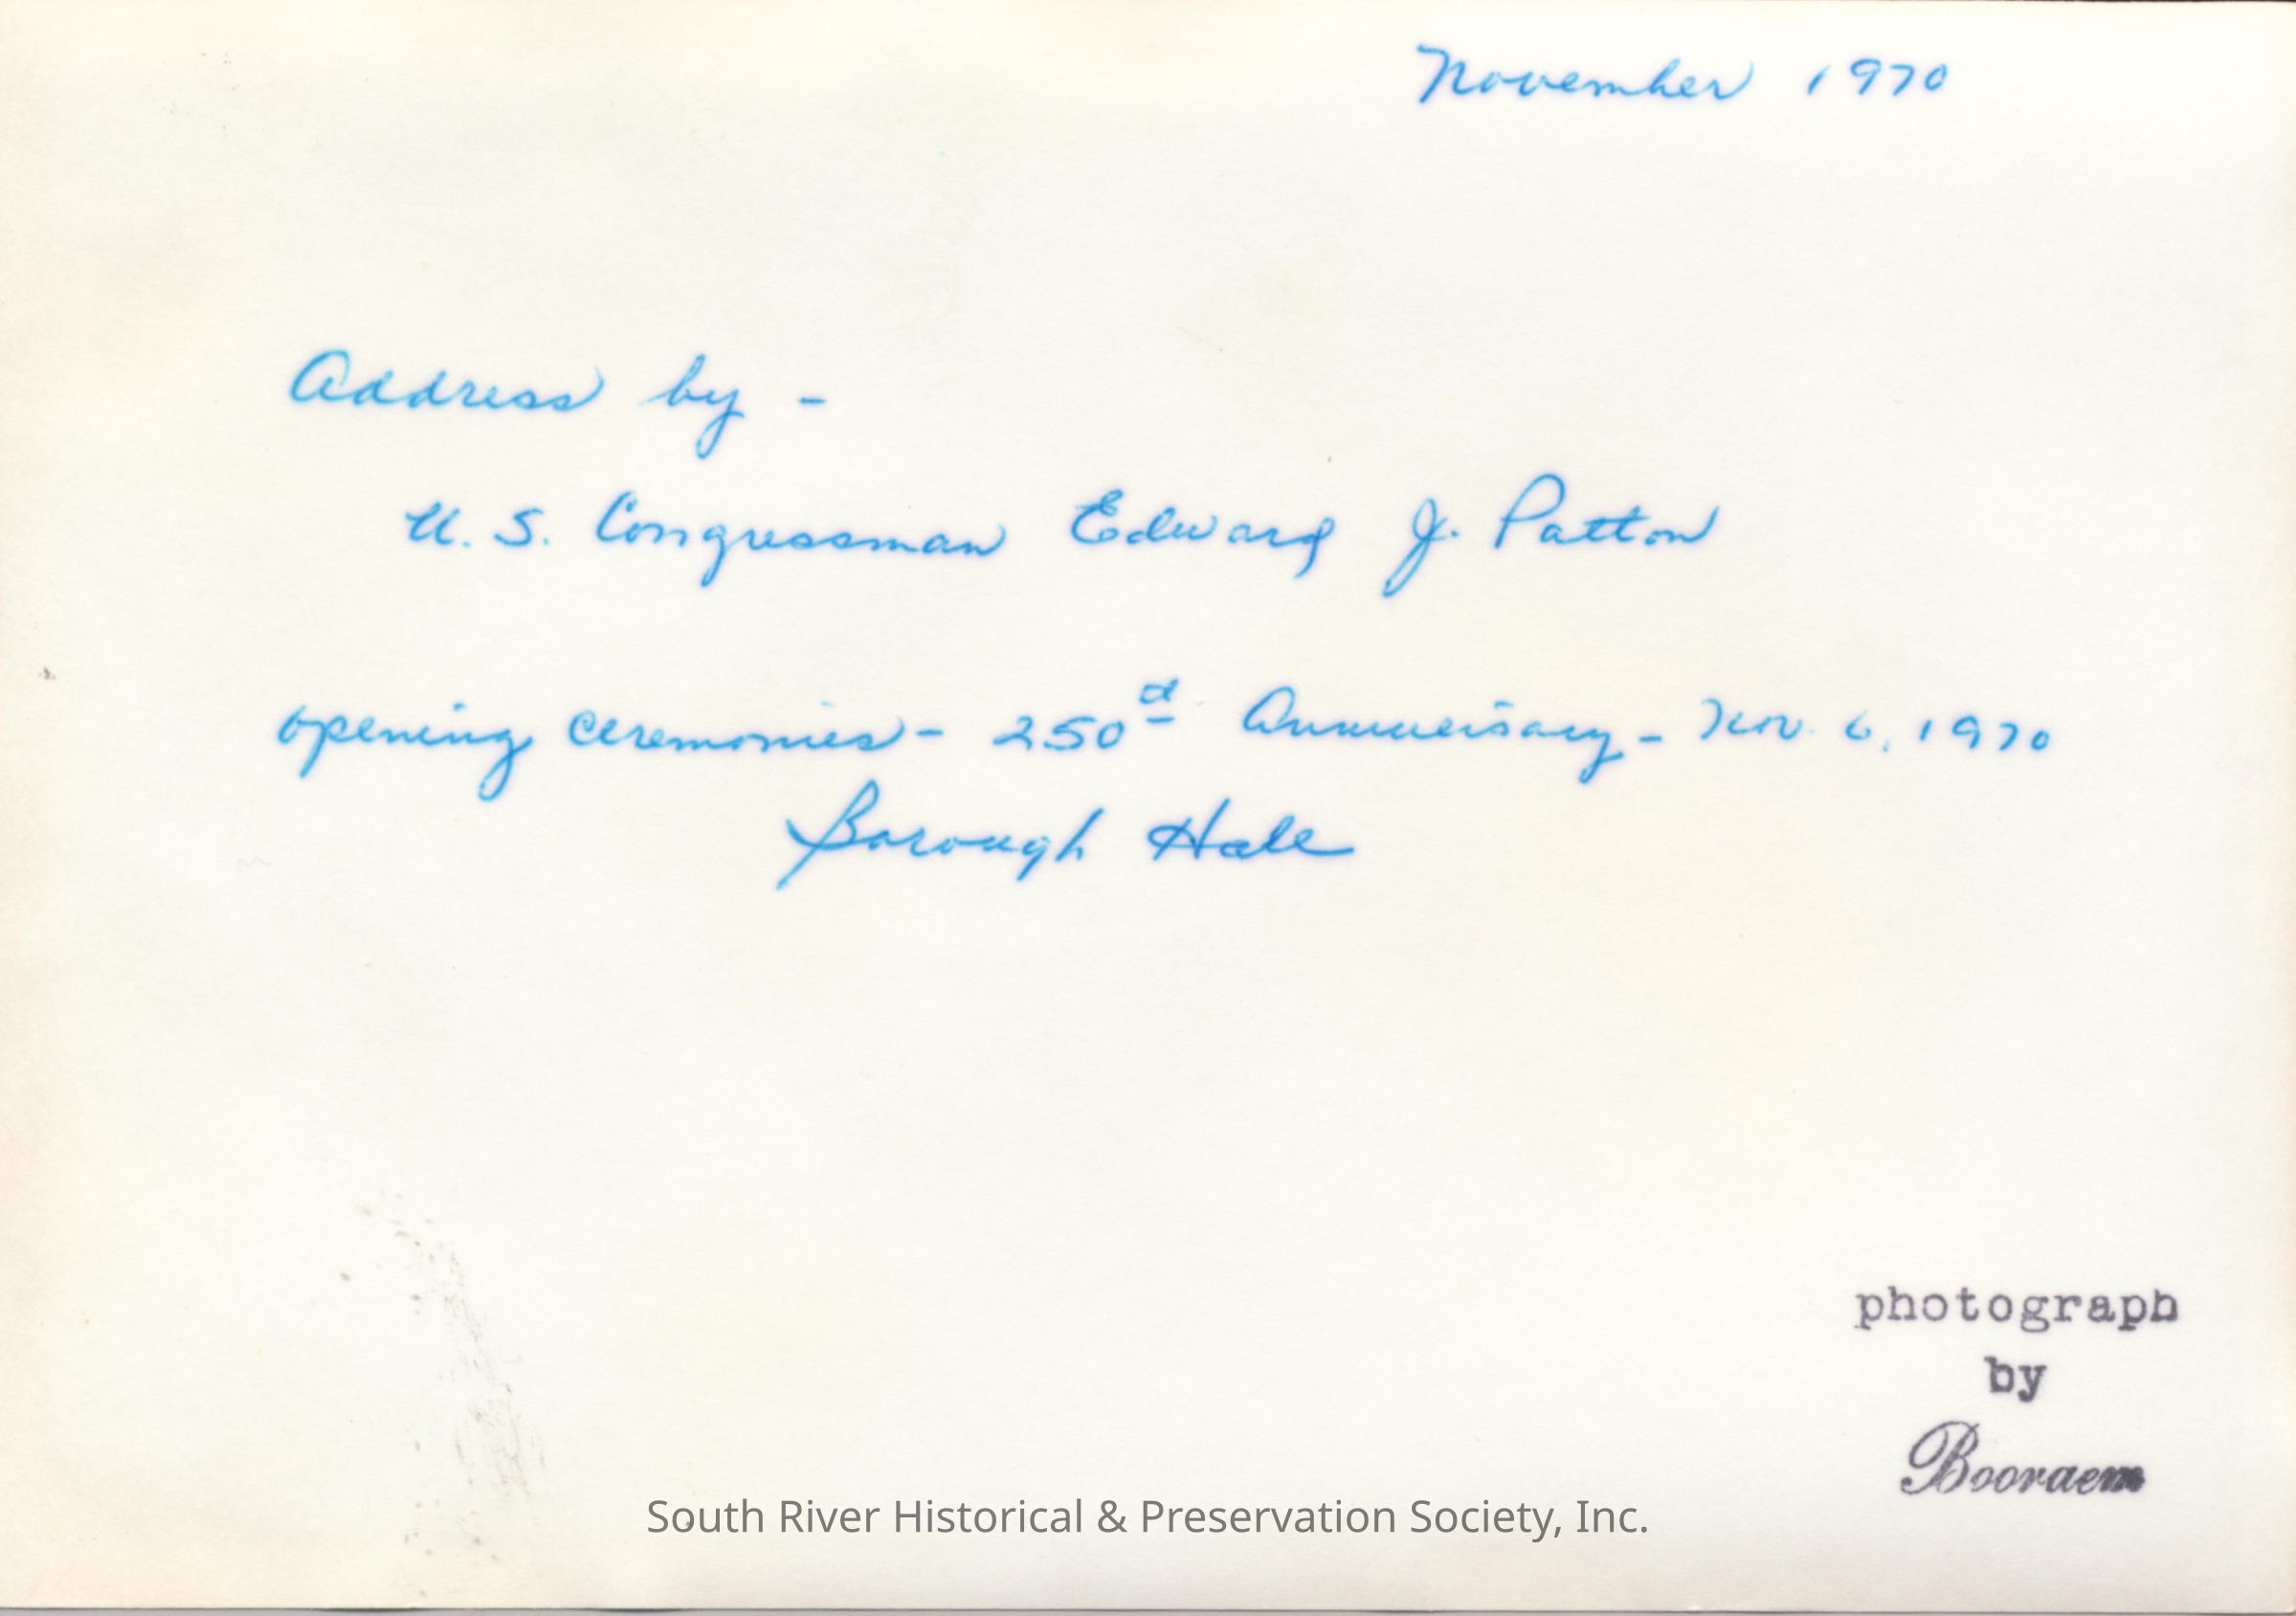 November 1970
Address by -
U. S. Congressman Edward J. Patton
opening ceremonies - 250th Anniversary - Nov. 6, 1970
Borough Hall
photograph
by
Booraem
South River Historical & Preservation Society, Inc.